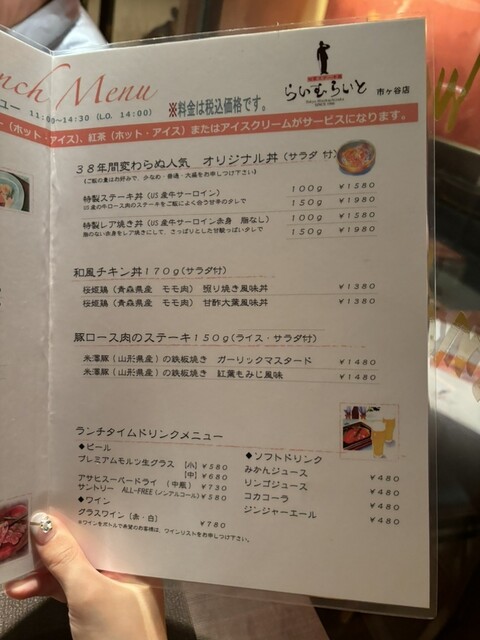 nch Menu
ュー 11:00~14:30 (L.O. 14:00)
※料金は税込価格です。
らいむらいと 市ヶ谷店
ー(ホット・アイス)、紅茶(ホット・アイス)またはアイスクリームがサービスになります。
38年間変わらぬ人気 オリジナル丼(サラダ付)
(ご飯の量はお好みで、少なめ・普通・大盛をお申しつけ下さい)
特製ステーキ丼(US産牛サーロイン) 100g ¥1580
US産の牛ロース肉のステーキをご飯によく合う甘辛のタレで 150g ¥1980
特製レア焼き丼(US産牛サーロイン赤身 脂なし) 100g ¥1580
脂のない赤身をレア焼きにして、さっぱりとした甘酸っぱいタレで 150g ¥1980
和風チキン丼170g(サラダ付)
桜姫鶏(青森県産 モモ肉) 照り焼き風味丼 ¥1380
桜姫鶏(青森県産 モモ肉) 甘酢大葉風味丼 ¥1380
豚ロース肉のステーキ150g(ライス・サラダ付)
米澤豚(山形県産)の鉄板焼き ガーリックマスタード ¥1480
米澤豚(山形県産)の鉄板焼き 紅葉もみじ風味 ¥1480
ランチタイムドリンクメニュー
◆ビール
プレミアムモルツ生グラス [小] ¥580
[中] ¥680
アサヒスーパードライ (中瓶) ¥730
サントリー ALL-FREE(ノンアルコール) ¥580
◆ワイン
グラスワイン[赤・白] ¥780
※ワインをボトルで希望のお客様は、ワインリストをお申しつけ下さい。
◆ソフトドリンク
みかんジュース ¥480
リンゴジュース ¥480
コカコーラ ¥480
ジンジャーエール ¥480